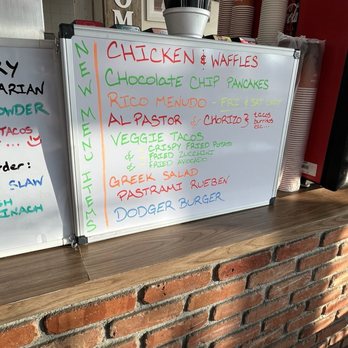 OM
RY
ARIAN
OWDER
TACOS
rder:
SLAW
SH
INACH
NEW MENU ITEMS
CHICKEN & WAFFLES
CHOCOLATE CHIP PANCAKES
RICO MENUDO - FRI & SAT ONLY
AL PASTOR & CHORIZO } TACOS
BURRITOS
ETC.
VEGGIE TACOS
& CRISPY FRIED POTATO
& FRIED ZUCCHINI
& FRIED AVOCADO
GREEK SALAD
PASTRAMI RUEBEN
DODGER BURGER